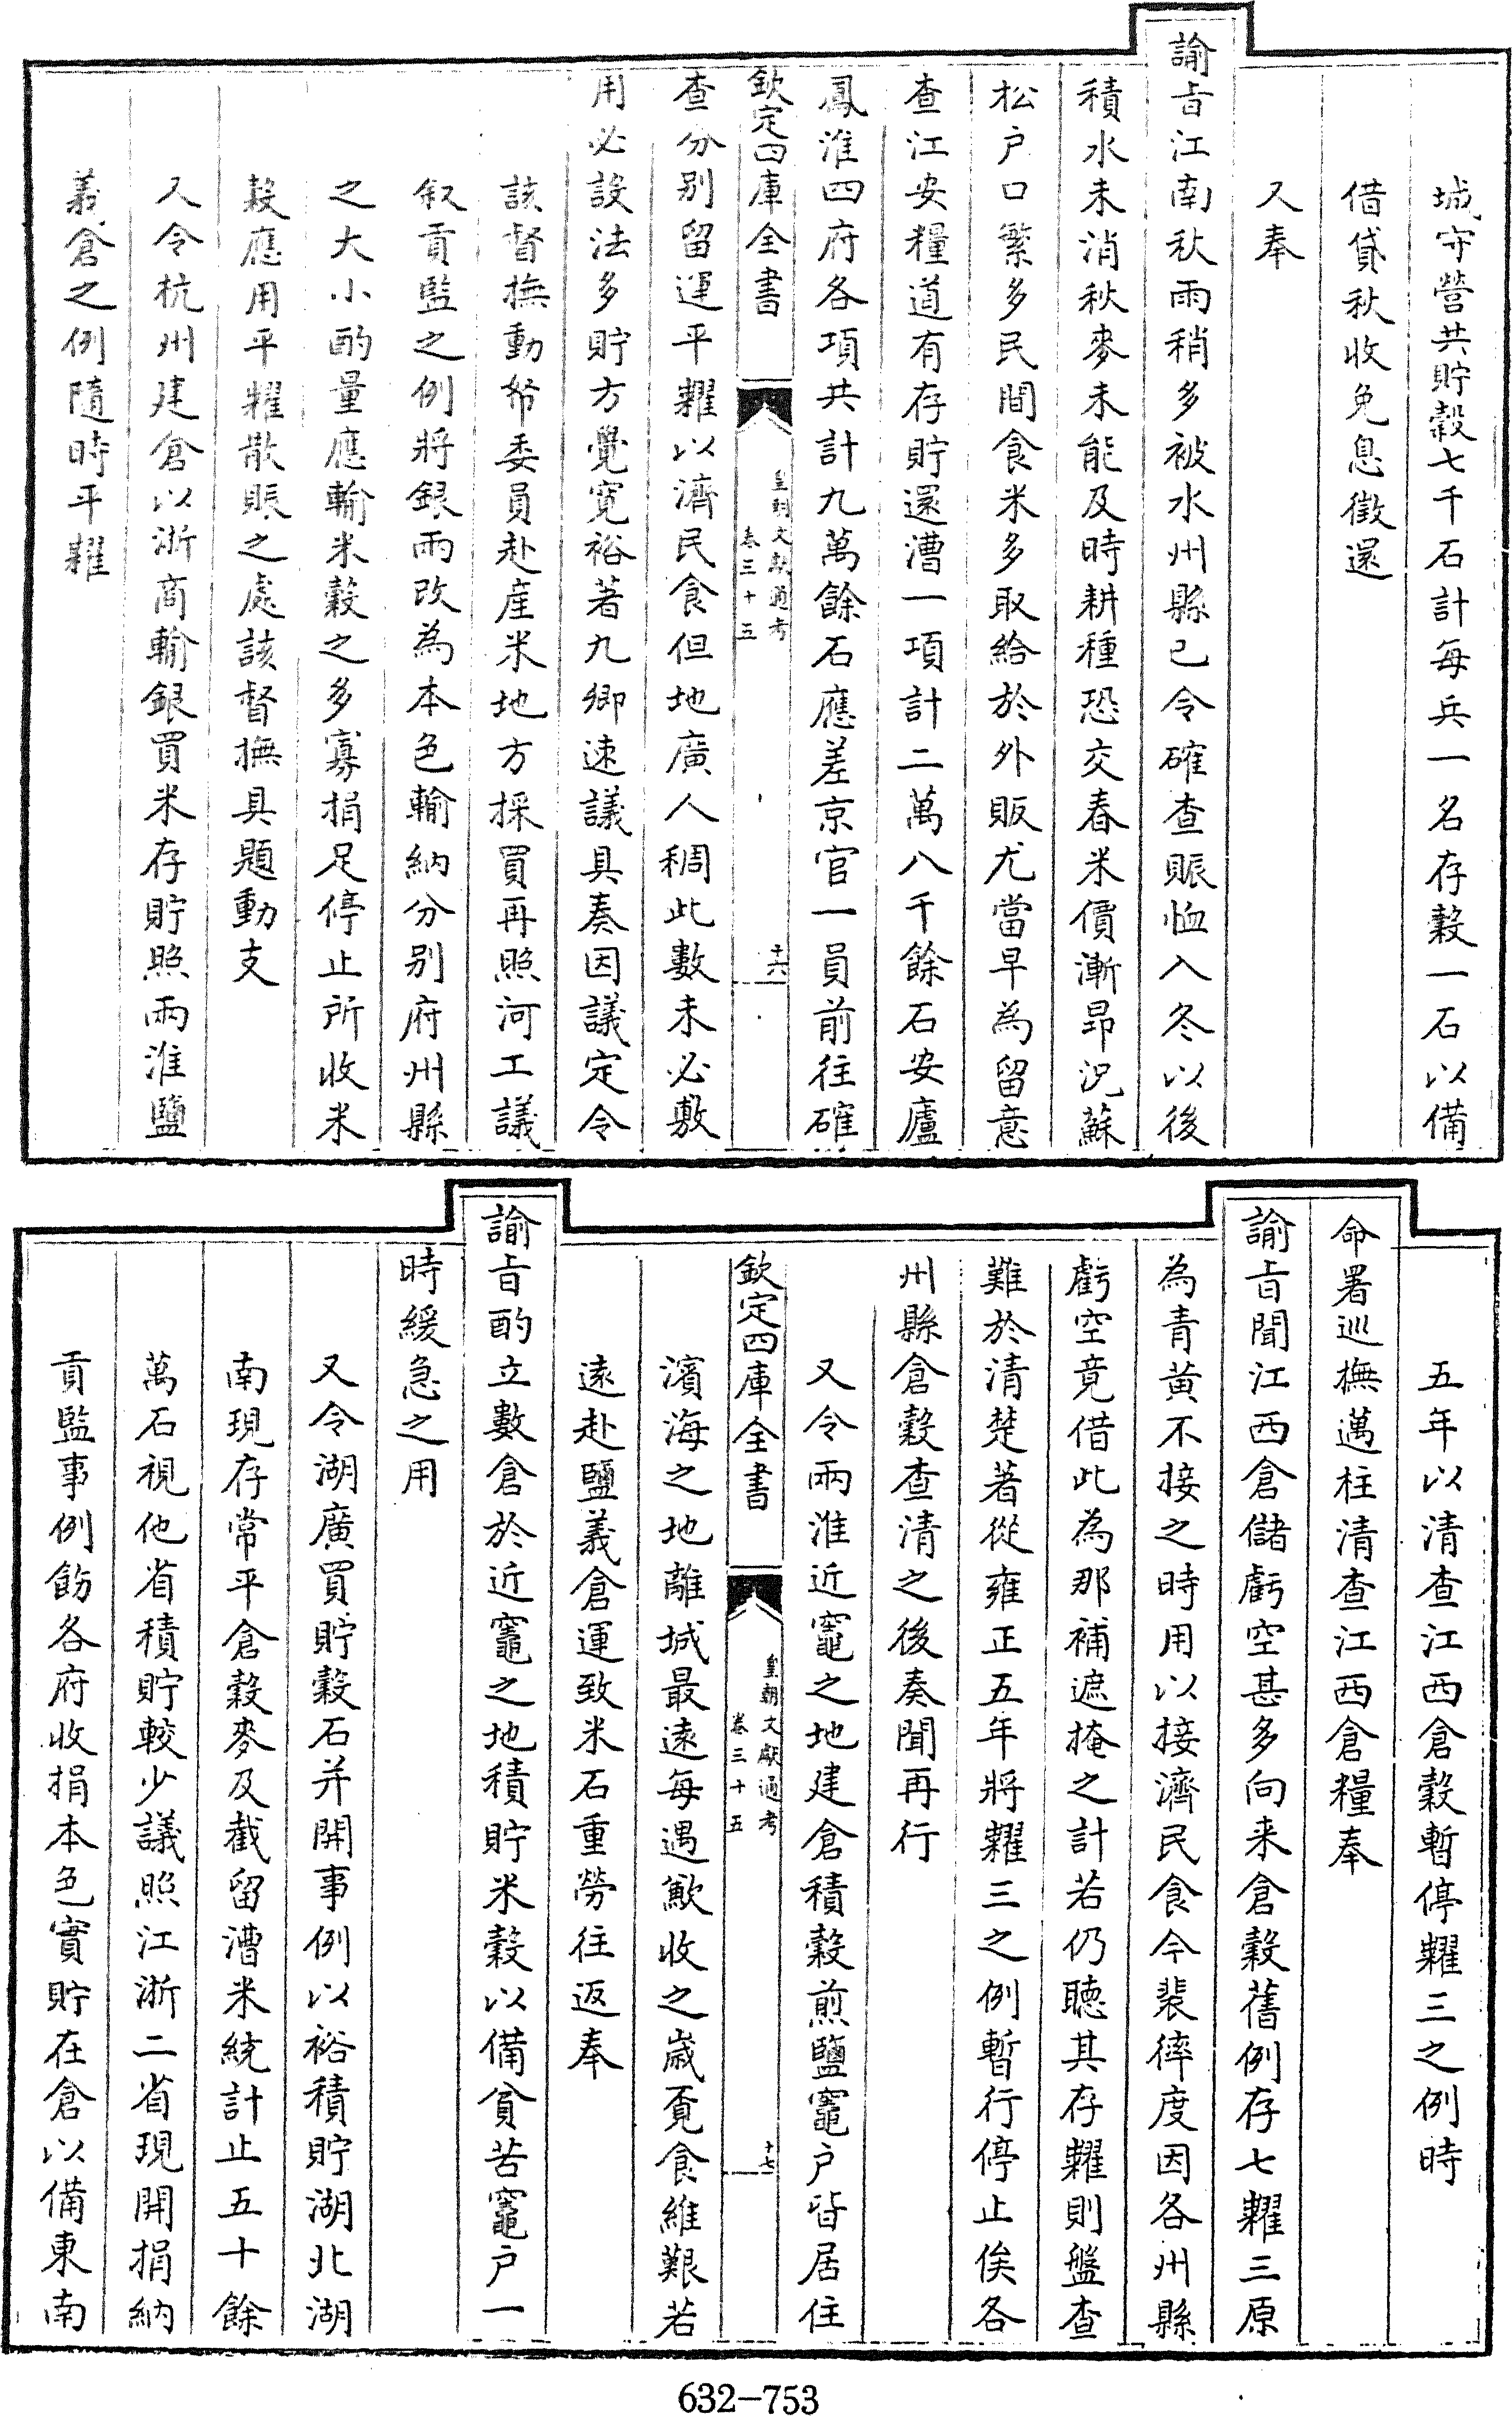 城守營共貯榖七千石計每兵一名存榖一石以備
借貸秋收免息徵還
又奉
諭旨江南秋雨稍多被水州縣已令確查賑恤入冬以後
積水未消秋麥未能及時耕種恐交春米價漸昂況蘇
松户口繁多民間食米多取給於外販尤當早為留意
查江安糧道有存貯還漕一項計二萬八千餘石安廬
鳳淮四府各項共計九萬餘石應差京官一員前往確
欽定四庫全書
皇朝文獻通考
卷三十五
十六
查分别留運平糶以濟民食但地廣人稠此數未必敷
用必設法多貯方覺寛裕著九卿速議具奏因議定令
該督撫動帑委員赴産米地方採買再照河工議
叙貢監之例將銀兩改為本色輸納分别府州縣
之大小酌量應輸米榖之多寡捐足停止所收米
榖應用平糶散賑之處該督撫具題動支
又令杭州建倉以浙商輸銀買米存貯照兩淮鹽
義倉之例隨時平糶
五年以清查江西倉榖暫停糶三之例時
命署巡撫邁柱清查江西倉糧奉
諭旨聞江西倉儲虧空甚多向来倉榖舊例存七糶三原
為青黄不接之時用以接濟民食今裴𢕑度因各州縣
虧空竟借此為那補遮掩之計若仍聽其存糶則盤查
難於清楚著從雍正五年將糶三之例暫行停止俟各
州縣倉榖查清之後奏聞再行
又令兩淮近竈之地建倉積榖煎鹽竈户皆居住
欽定四庫全書
皇朝文獻通考
卷三十五
十七
濱海之地離城最遠每遇歉收之歳覓食維艱若
遠赴鹽義倉運致米石重勞往返奉
諭旨酌立數倉於近竈之地積貯米榖以備貧苦竈户一
時緩急之用
又令湖廣買貯榖石并開事例以裕積貯湖北湖
南現存常平倉榖麥及截留漕米統計止五十餘
萬石視他省積貯較少議照江浙二省現開捐納
貢監事例飭各府收捐本色實貯在倉以備東南
632-753